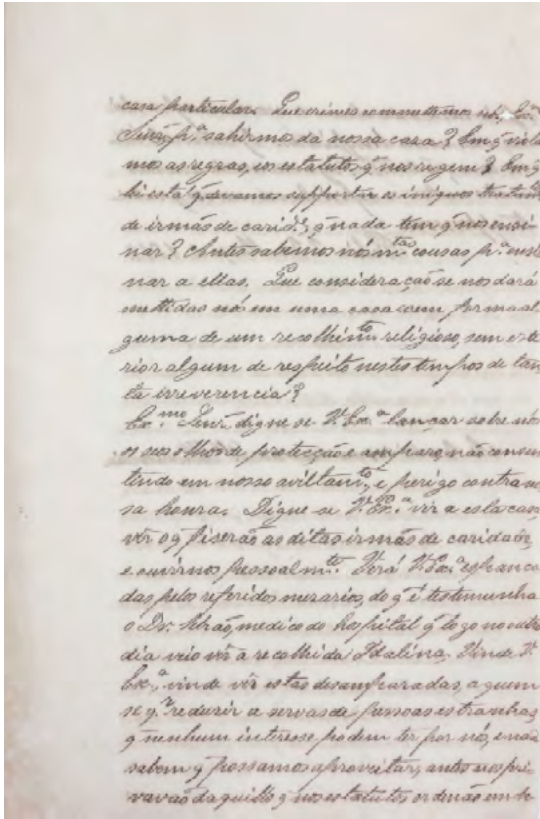 casa particular. Que crimes commettemos nós, Ex.ª
Senr.ª p.ª sahirmos da nossa casa? Em q̃ viola
mos as regras, os estatutos q̃ nos regem? Em q̃
lei está q̃ devamos supportar os iniquos tratam
de irmãs de carid.e, q̃ nada tem q̃ nos ensi
nar? Antes sabemos nós m.tas cousas p.ª ensi
nar a ellas. Que consideração se nos dará
mettidas nós em uma casa sem forma al
guma de um recolhim.to religioso, sem exte
rior algum de respeito nestes tempos de tan
ta irreverencia?
Ex.mo Senr. digne se V. Ex.ª lançar sobre nós
os seus olhos de protecção e amparo, não consen
tindo em nosso aviltam.to, e perigo contra nos
sa honra. Digne se V. Ex.ª vir a esta casa
vêr o q̃ fiserão as ditas irmãs de caridade,
e ouvirnos pessoalm.te. Verá V. Ex.ª espanca
das pelo referido mezario, do q̃ é testemunha
o Dr. Adrião, medico do hospital q̃ logo no outro
dia veio vêr a recolhida Idalina. Vinde V.
Ex.ª, vinde vêr estas desamparadas, a quem
se q.r reduzir a servas de pessoas estranhas
q̃ nenhum interesse podem ter por nós, e nada
sabem q̃ possamos aproveitar, antes nos pri
varão daquillo q̃ nos estatutos ordenão em be